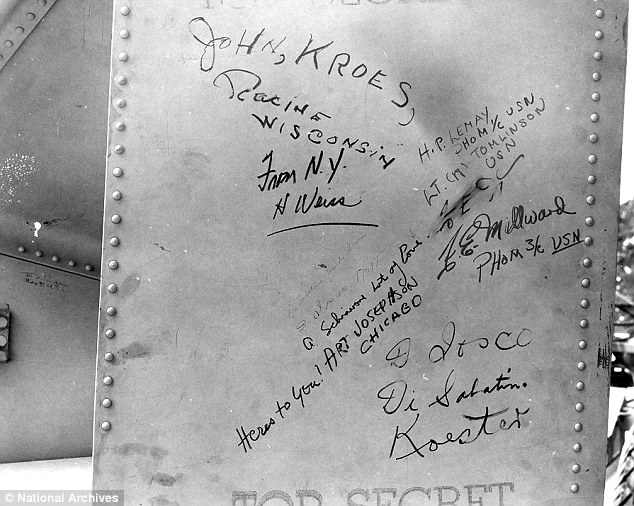 TOP SECRET
JOHN, KROES,
Racine
WISCONSIN
From N.Y.
H Weiss
H.P. LEMAY
PHOM 1/C USN
LT. (jg) TOMLINSON
USN
E.E. Millward
PHOM 3/c USN
a lot of love
Heres to You! ART JOSEPHSON
CHICAGO
D Tosco
Di Sabatin.
Koester
TOP SECRET
© National Archives